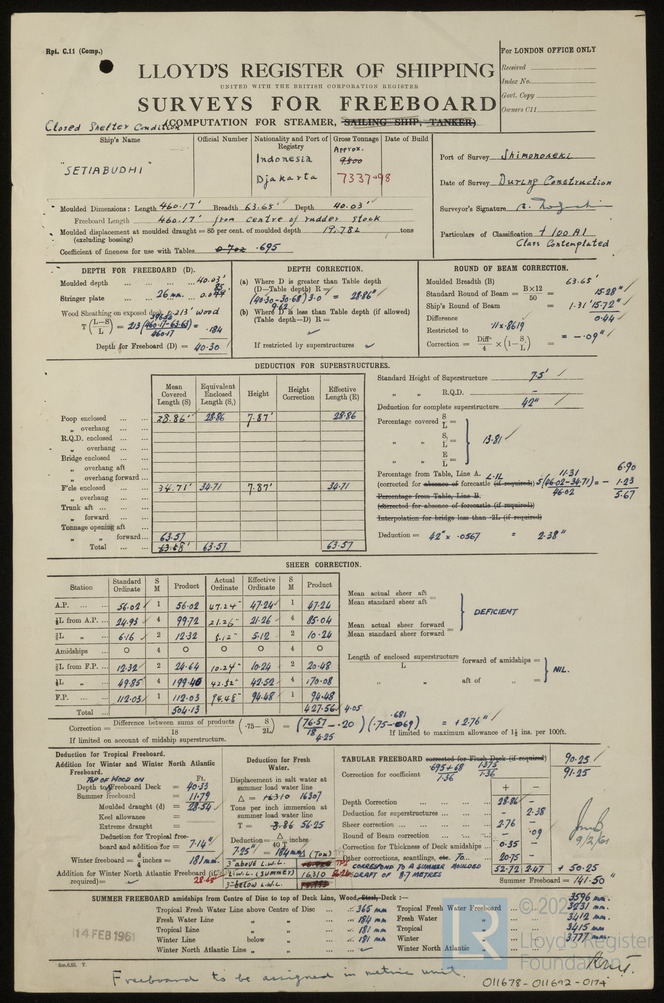 Rpt. C.11 (Comp.)
For LONDON OFFICE ONLY
LLOYD'S REGISTER OF SHIPPING
UNITED WITH THE BRITISH CORPORATION REGISTER
SURVEYS FOR FREEBOARD
Received
Index No.
Govt. Copy
Owners C11
Closed Shelter Condition
(COMPUTATION FOR STEAMER, SAILING SHIP, TANKER)
Ship's Name
Official Number
Nationality and Port of Registry
Gross Tonnage
Date of Build
"SETIABUDHI"
Indonesia
Djakarta
Approx.
9500
7337.98
Port of Survey Shimonoseki
Date of Survey During Construction
Surveyor's Signature
Particulars of Classification +100A1
Class Contemplated
Moulded Dimensions: Length 460.17' Breadth 63.65' Depth 40.03'
Freeboard Length 460.17' from centre of rudder stock
Moulded displacement at moulded draught = 85 per cent. of moulded depth 19,782 tons
(excluding bossing)
Coefficient of fineness for use with Tables 0.702 .695
DEPTH FOR FREEBOARD (D).
Moulded depth 40.03'
Stringer plate 26 mm.
Wood Sheathing on exposed deck .213' wood
T (L-S/L) = .184
Depth for Freeboard (D) = 40.30
DEPTH CORRECTION.
(a) Where D is greater than Table depth
(D-Table depth) R =
(40.30-30.68) 3.0 = 28.86"
9.62
(b) Where D is less than Table depth (if allowed)
(Table depth-D) R =
If restricted by superstructures
ROUND OF BEAM CORRECTION.
Moulded Breadth (B) 63.65'
Standard Round of Beam = B×12/50 = 15.28"
Ship's Round of Beam = 1.31' 15.72"
Difference 0.44
Restricted to
Correction = Diff./4 × (1-S₁/L) = -.09"
DEDUCTION FOR SUPERSTRUCTURES.
Mean Covered Length (S)
Equivalent Enclosed Length (S₁)
Height
Height Correction
Effective Length (E)
Poop enclosed 28.86' 28.86 7.87' 28.86
" overhang
R.Q.D. enclosed
" overhang
Bridge enclosed
" overhang aft
" overhang forward
F'cle enclosed 34.71' 34.71 7.87' 34.71
" overhang
Trunk aft
" forward
Tonnage opening aft
" " forward 63.57
Total 63.58' 63.57 63.57
Standard Height of Superstructure 7.5'
" " R.Q.D. -
Deduction for complete superstructure 42"
Percentage covered S/L =
" " S₁/L = 13.81
" " E/L =
Percentage from Table, Line A. 6.90
(corrected for absence of forecastle (if required)) 5(46.02-34.71)/46.02 = - 1.23
11.31
5.67
Percentage from Table, Line B.
(corrected for absence of forecastle (if required))
Interpolation for bridge less than .2L (if required)
Deduction = 42" × .0567 = 2.38"
SHEER CORRECTION.
Station
Standard Ordinate
S M
Product
Actual Ordinate
Effective Ordinate
S M
Product
A.P. 56.02 1 56.02 47.24" 47.24 1 47.24
⅙L from A.P. 24.93 4 99.72 21.26" 21.26 4 85.04
⅓L " 6.16 2 12.32 5.12" 5.12 2 10.24
Amidships 0 4 0 0 0 4 0
⅓L from F.P. 12.32 2 24.64 10.24" 10.24 2 20.48
⅙L " 49.85 4 199.40 42.52" 42.52 4 170.08
F.P. 112.03 1 112.03 94.48" 94.48 1 94.48
Total 504.13 427.56
Mean actual sheer aft
Mean standard sheer aft =
Mean actual sheer forward
Mean standard sheer forward =
DEFICIENT
Length of enclosed superstructure forward of amidships =
L
" " aft of " =
NIL.
Correction = Difference between sums of products/18 (.75-S/2L) = (76.57/18 - .20) (.75-.069) = +2.76"
4.05
.681
4.25
If limited on account of midship superstructure.
If limited to maximum allowance of 1½ ins. per 100ft.
Deduction for Tropical Freeboard.
Addition for Winter and Winter North Atlantic Freeboard.
TOP OF WOOD ON
Ft.
Depth to Freeboard Deck = 40.33
Summer freeboard = 11.79
Moulded draught (d) = 28.54
Keel allowance =
Extreme draught =
Deduction for Tropical freeboard and addition for = 7.14"
Winter freeboard = d/4 inches = 181 mm.
Addition for Winter North Atlantic Freeboard (if required)=
28.65
Deduction for Fresh Water.
Displacement in salt water at summer load water line
Δ = 16310 16307
Tons per inch immersion at summer load water line
T = 56.25
Deduction = Δ/40T inches
7.25" = 184 mm
Δ (TON)
TPI
3" above L.W.L.
L.W.L. (SUMMER) 16310
3" below L.W.L.
TABULAR FREEBOARD corrected for Flush Deck (if required) 90.25
Correction for coefficient .695+.68/1.36 1.375/1.36 91.25
+ -
Depth Correction 28.86 -
Deduction for superstructures - 2.38
Sheer correction 2.76 -
Round of Beam correction - .09
Correction for Thickness of Deck amidships 0.35 -
Other corrections, scantlings, etc. To 20.75 -
CORRESPOND TO A SUMMER MOULDED DRAFT OF 8.7 METRES
52.72 2.47 + 50.25
Summer Freeboard = 141.50"
9/2/61
SUMMER FREEBOARD amidships from Centre of Disc to top of Deck Line, Wood, Steel, Deck :-
3596 mm.
Tropical Fresh Water Line above Centre of Disc 365 mm
Fresh Water Line " " 184 mm
Tropical Line " " 181 mm
Winter Line below " 181 mm
Winter North Atlantic Line " "
Tropical Fresh Water Freeboard 3231 mm.
Fresh Water " 3412 mm.
Tropical " 3415 mm
Winter " 3777 mm.
Winter North Atlantic "
14 FEB 1961
Freeboard to be assigned in metric unit.
011678-011692-0174
LR
Lloyd's Register
Foundation